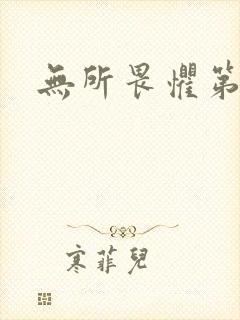 無所畏懼第
寒菲兒